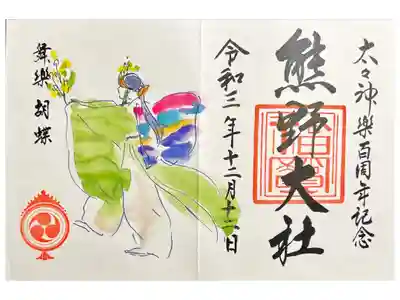 太々神樂百周年記念
熊野大社
令和三年十二月十二日
舞樂胡蝶